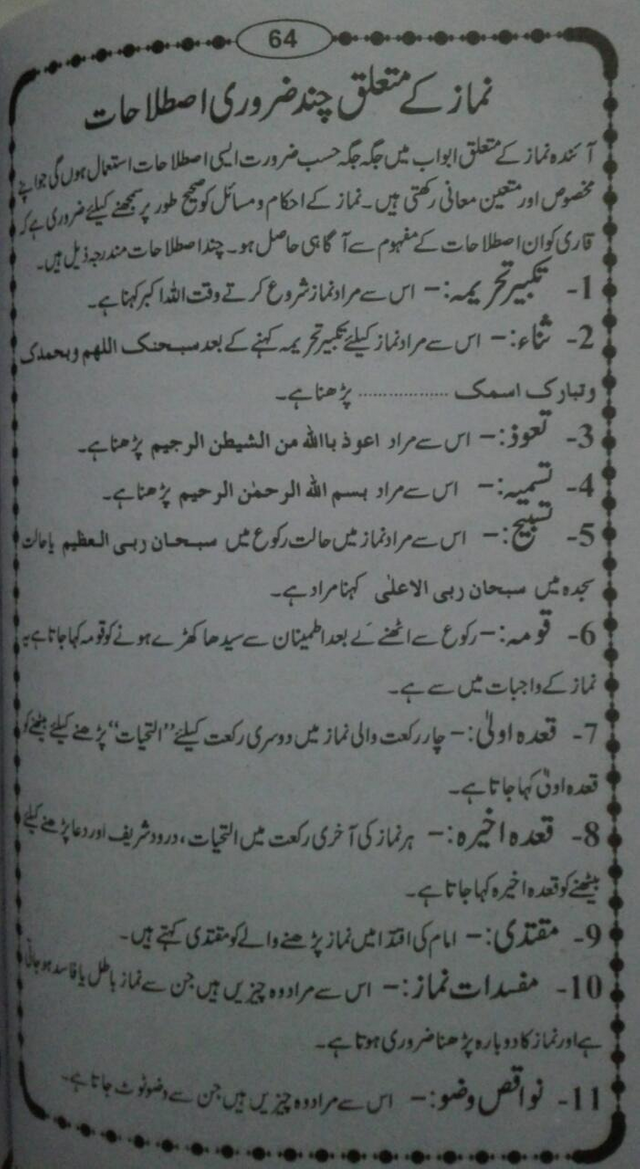 64
نماز کے متعلق چند ضروری اصطلاحات
آئندہ نماز کے متعلق ابواب میں جگہ جگہ حسب ضرورت ایسی اصطلاحات استعمال ہوں گی جو اپنے
مخصوص اور متعین معانی رکھتی ہیں۔ نماز کے احکام و مسائل کو صحیح طور پر سمجھنے کیلئے ضروری ہے کہ
قاری کو ان اصطلاحات کے مفہوم سے آگاہی حاصل ہو۔ چند اصطلاحات مندرجہ ذیل ہیں۔
1- تکبیر تحریمہ:- اس سے مراد نماز شروع کرتے وقت اللہ اکبر کہنا ہے۔
2- ثناء:- اس سے مراد نماز کیلئے تکبیر تحریمہ کہنے کے بعد سبحنک اللهم وبحمدک
وتبارک اسمک .................. پڑھنا ہے۔
3- تعوذ:- اس سے مراد اعوذ باالله من الشیطن الرجیم پڑھنا ہے۔
4- تسمیہ:- اس سے مراد بسم الله الرحمٰن الرحیم پڑھنا ہے۔
5- تسبیح:- اس سے مراد نماز میں حالت رکوع میں سبحان ربی العظیم یا حالت
سجدہ میں سبحان ربی الاعلیٰ کہنا مراد ہے۔
6- قومہ:- رکوع سے اٹھنے کے بعد اطمینان سے سیدھا کھڑے ہونے کو قومہ کہا جاتا ہے یہ
نماز کے واجبات میں سے ہے۔
7- قعدہ اولیٰ:- چار رکعت والی نماز میں دوسری رکعت کیلئے ”التحیات“ پڑھنے کیلئے بیٹھنے کو
قعدہ اولیٰ کہا جاتا ہے۔
8- قعدہ اخیرہ:- ہر نماز کی آخری رکعت میں التحیات، درود شریف اور دعا پڑھنے کیلئے
بیٹھنے کو قعدہ اخیرہ کہا جاتا ہے۔
9- مقتدی:- امام کی اقتدا میں نماز پڑھنے والے کو مقتدی کہتے ہیں۔
10- مفسدات نماز:- اس سے مراد وہ چیزیں ہیں جن سے نماز باطل یا فاسد ہو جاتی
ہے اور نماز کا دوبارہ پڑھنا ضروری ہوتا ہے۔
11- نواقص وضو:- اس سے مراد وہ چیزیں ہیں جن سے وضو ٹوٹ جاتا ہے۔